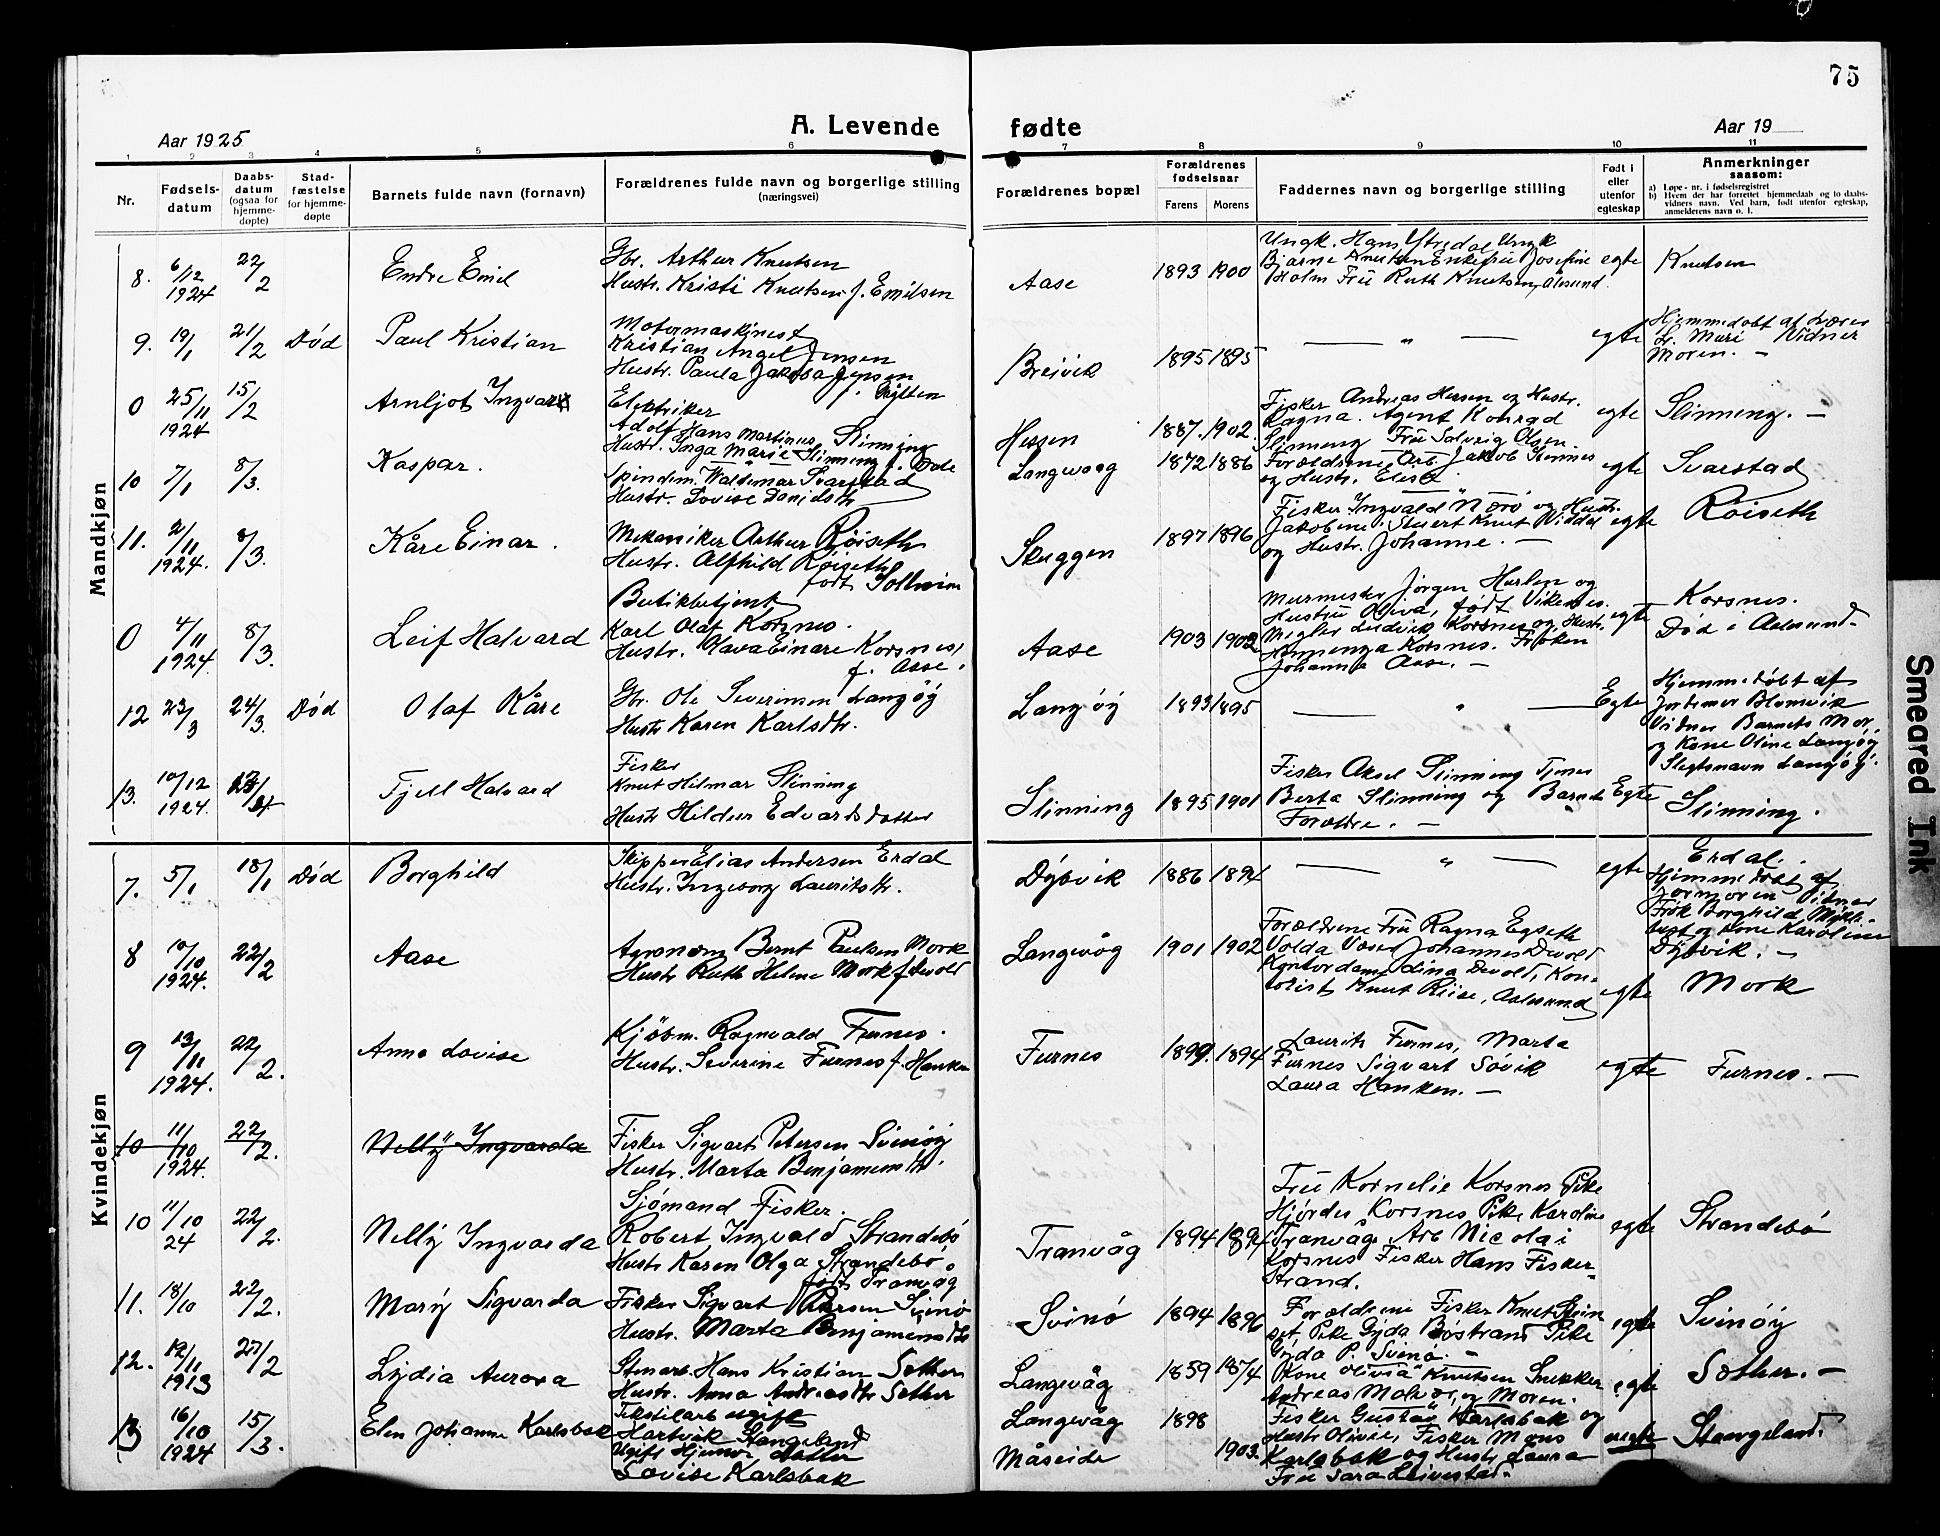 75
Aar 1925
A. Levende
fødte
Aar 19
1 2 3 4 5 6 7 8 9 10 11
Nr.
Fødsels-
datum
Daabs-
datum
(ogsaa for
hjemme-
døpte)
Stad-
fæstelse
for hjemme-
døpte
Barnets fulde navn (fornavn)
Forældrenes fulde navn og borgerlige stilling
(næringsvei)
Forældrenes bopæl
Forældrenes
fødselsaar
Farens Morens
Faddernes navn og borgerlige stilling
Født i
eller
utenfor
egteskap
Anmerkninger
saasom:
a) Løpe-nr. i fødselsregistret
b) Hvem der har forrettet hjemmedaab og to daabs-
vidners navn. Ved barn, født utenfor egteskap,
anmelderens navn o. l.
Mandkjøn
8. 6/12 1924 22/2 Endre Emil
Gbr. Arthur Knutsen
Hustr. Kristi Knutsen f. Emilsen
Aase 1893 1900
Ungk. Hans Ytredal Ungk
Bjarne Knutsen Enkefru Josefine
Holm Fru Ruth Knutsen, Ålesund.
egte Knutsen
9. 19/1 21/2 Død Paul Kristian
Motormaskinest
Kristian Angel Jensen
Hustr. Paula Jakoba Jensen
f. Myklen
Breivik 1895 1895
— " — egte
Hjemmedøbt af
Mari Vidner
Moren. —
0 25/11 1924 15/2 Arnljot Ingvar
Elektriker
Adolf Hans Martinus Slinning
Hustr. Inga Marie Slinning f. Dale
Hessen 1887. 1902.
Fisker Andreas Hessen og Hustr.
Ragna. Agent Konrad
Slinning Fru Solveig Olsen.
egte Slinning. —
10 7/1 8/3. Kaspar.
Spindem. Waldemar Svarstad
Hustr. Lovise Danielsdtr
Langevaag 1872 1886
Forældrene Arb. Jakob Slinnes
og Hustr. Elise
egte Svarstad
11. 2/11 1924. 8/3. Kåre Einar.
Mekaniker Arthur Røiseth
Hustr. Alfhild Røiseth
født Solheim
Skuggen 1897 1896
Fisker Ingvald Nørø og Hustr.
Jakobine. Knut Viddal
og Hustr. Johanne. —
egte Røiseth
0 4/11 1924 8/3. Leif Halvard
Butikbetjent
Karl Olaf Korsnes.
Hustr. Olava Einare Korsnes,
f. Aase.
Aase 1903 1902
Murmester Jørgen Hurlen og
Hustru Oliva, født Vikenes.
Megler Ludvik Korsnes og Hustr.
Korsnes. Frøken
Johanna Aase. —
egte Korsnes.
Død i Aalesund.
12 23/3 24/3. Død Olaf Kåre
Gbr. Ole Severinsen Langøy
Hustr Karen Karlsdtr.
Langøy 1893 1895
— " — Egte
Hjemmedøbt af
Jordmor Blomvik
Vidner Barnets Mor,
og Kone Oline Langøy
Slegtsnavn Langøy.
13. 10/12 1924. Kjell Halvard
Fisker
Knut Hilmar Slinning
Hustr Hildur Edvardsdotter
Slinning 1895 1901
Fisker Aksel Slinning Tjener
Berta Slinning og Barnets
Forældre. —
Egte Slinning.
Kvindekjøn
7. 5/1 18/1 Død Borghild
Skipper Elias Andersen Erdal
Hustr. Ingeborg Lauritsdtr.
Dybvik 1886 1894
— " — egte
Erdal.
Hjemmedøbt af
Jormoren Vidner
Frøk Borghild
og Kone Karoline
Dybvik. —
8 10/10 1924. 22/2 Aase
Agronom Bernt Paulsen Mork
Hustr Ruth Helene Mork f. Devold
Langevåg 1901 1902
Forældrene Fru Ragna Egseth
Volda Johannes Devold
Kontordame Lina Devold, Kon-
torist Knut Riise, Aalesund
egte Mork
9 13/11 1924. 22/2. Anna Lovise
Kjøbm. Ragnvald Furnes.
Hustr. Severine Furnes f. Hanken
Furnes 1899. 1894
Laurits Furnes, Marta
Furnes Sigvart Søvik
Laura Hanken. —
egte Furnes. —
10 11/10 1924. 22/2. Nelly Ingvarda
Fisker Sigvart Petersen Svinøy
Hustr. Marta Benjaminsdtr.
10 11/10 24 22/2. Nelly Ingvarda
Sjømand Fisker.
Robert Ingvald Strandebø
Hustr Karen Olga Strandebø,
født Tranvåg
Tranvåg 1894 1894
Fru Kornelie Korsnes Pike
Hjørdis Korsnes Pike Karoline
Tranvåg Arb Nicolai
Korsnes Fisker Hans Fisker-
Strand.
egte Strandebø
11. 18/10 22/2. Mary Sigvarda
Fisker Sigvart Petersen Svinø
Hustr. Marta Benjaminsdtr
Svinø 1894 1896
Forældrene Fisker Knut
Pike Gyda Bøstrand Pike
Gyda P. Svinø. —
egte Svinøy
12. 12/11 1913 22/2 Lydia Aurora
Stenarb. Hans Kristian Sæther
Hustr. Anna Andreasdtr Sæther
Langevåg 1859 1874
Kone Olivia Knutsen Snekker
Andreas Molvær, og Moren.
egte Sæther. —
13 16/10 1924 15/3. Elen Johanne Karlsbak
Tekstilarb ugift
Hartvik Stangeland
Ugift Hjemmev. Datter
Lovise Karlsbak
Langevåg 1898
Måseide 1903.
Fisker Gustav Karlsbak og
Hustr Olivie, Fisker Mons
Karlsbak og Hustr. Laura
Fru Sara Leivestad.
uegte Stangeland.
Smeared Ink